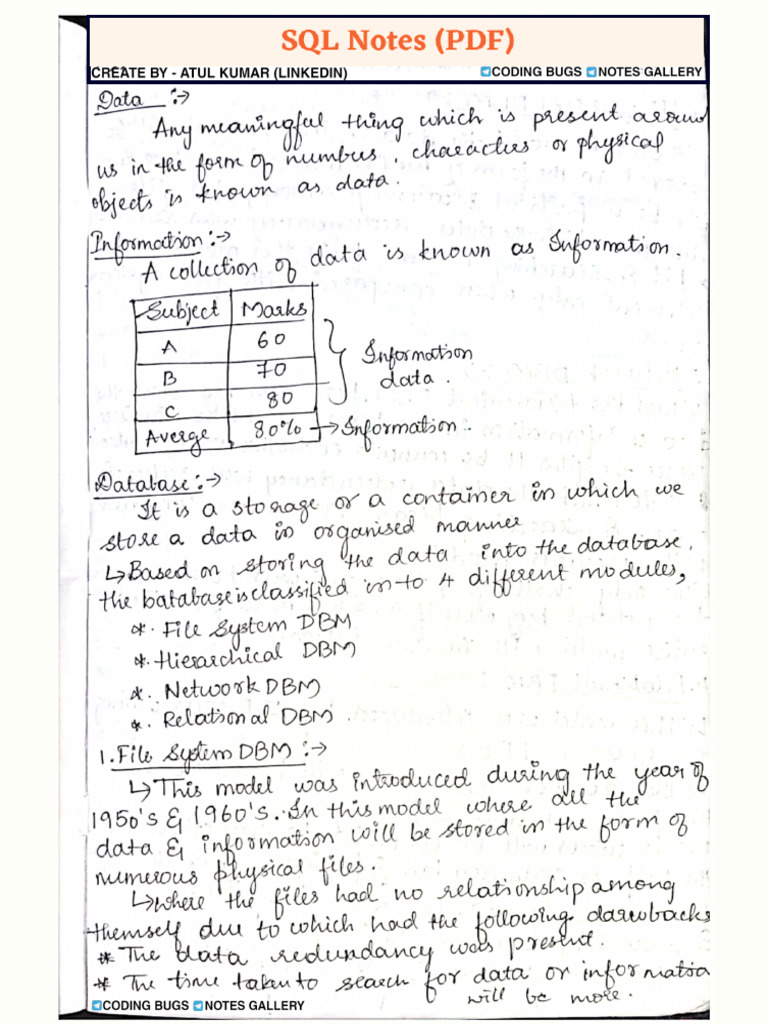 SQL Notes (PDF)
CREATE BY - ATUL KUMAR (LINKEDIN) CODING BUGS NOTES GALLERY
Data :→
Any meaningful thing which is present around
us in the form of numbers, characters or physical
objects is known as data.
Information :→
A collection of data is known as Information.
Subject Marks
A 60
B 70
C 80
Averge 80% → Information.
Information
data.
Database :→
It is a storage or a container in which we
store a data in organised manner
↳ Based on storing the data into the database,
the batabase is classified in to 4 different modules,
*. File System DBM
*. Hierarchical DBM
*. Network DBM
*. Relational DBM
1. File System DBM :→
↳ This model was introduced during the year of
1950's & 1960's. In this model where all the
data & information will be stored in the form of
numerous physical files.
↳ where the files had no relationship among
themself due to which had the following darwbacks
* The data redundancy was present.
* The time taken to search for data or informatio
will be more.
CODING BUGS NOTES GALLERY